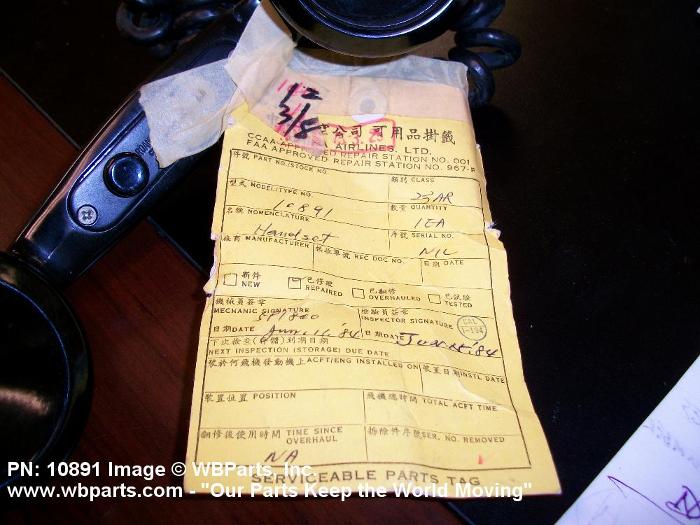 12
3/8
公司 可用品掛籤
AIRLINES, LTD.
CCAA APPROVED REPAIR STATION NO. 001
FAA APPROVED REPAIR STATION NO. 967-F
序號 PART NO./STOCK NO. 類別 CLASS
型式 MODEL/TYPE NO.
10891 數量 QUANTITY
名稱 NOMENCLATURE 1EA
Handset 序號 SERIAL NO.
廠商 MANUFACTURER 驗收單號 REC DOC NO. NIL
日期 DATE
新件 NEW 已修理 REPAIRED 已翻修 OVERHAULED 已試驗 TESTED
機械員簽章 MECHANIC SIGNATURE 檢驗員簽章 INSPECTOR SIGNATURE
日期 DATE Jun. 11 '84 日期 DATE Jun '84
下次檢查(存儲)到期日期
NEXT INSPECTION (STORAGE) DUE DATE
裝於何飛機發動機上 ACFT/ENG INSTALLED ON 裝置日期 INSTL DATE
裝置位置 POSITION 飛機總時間 TOTAL ACFT TIME
翻修後使用時間 TIME SINCE OVERHAUL 拆除件序號 SER. NO. REMOVED
NA
SERVICEABLE PARTS TAG
PN: 10891 Image © WBParts, Inc.
www.wbparts.com - "Our Parts Keep the World Moving"